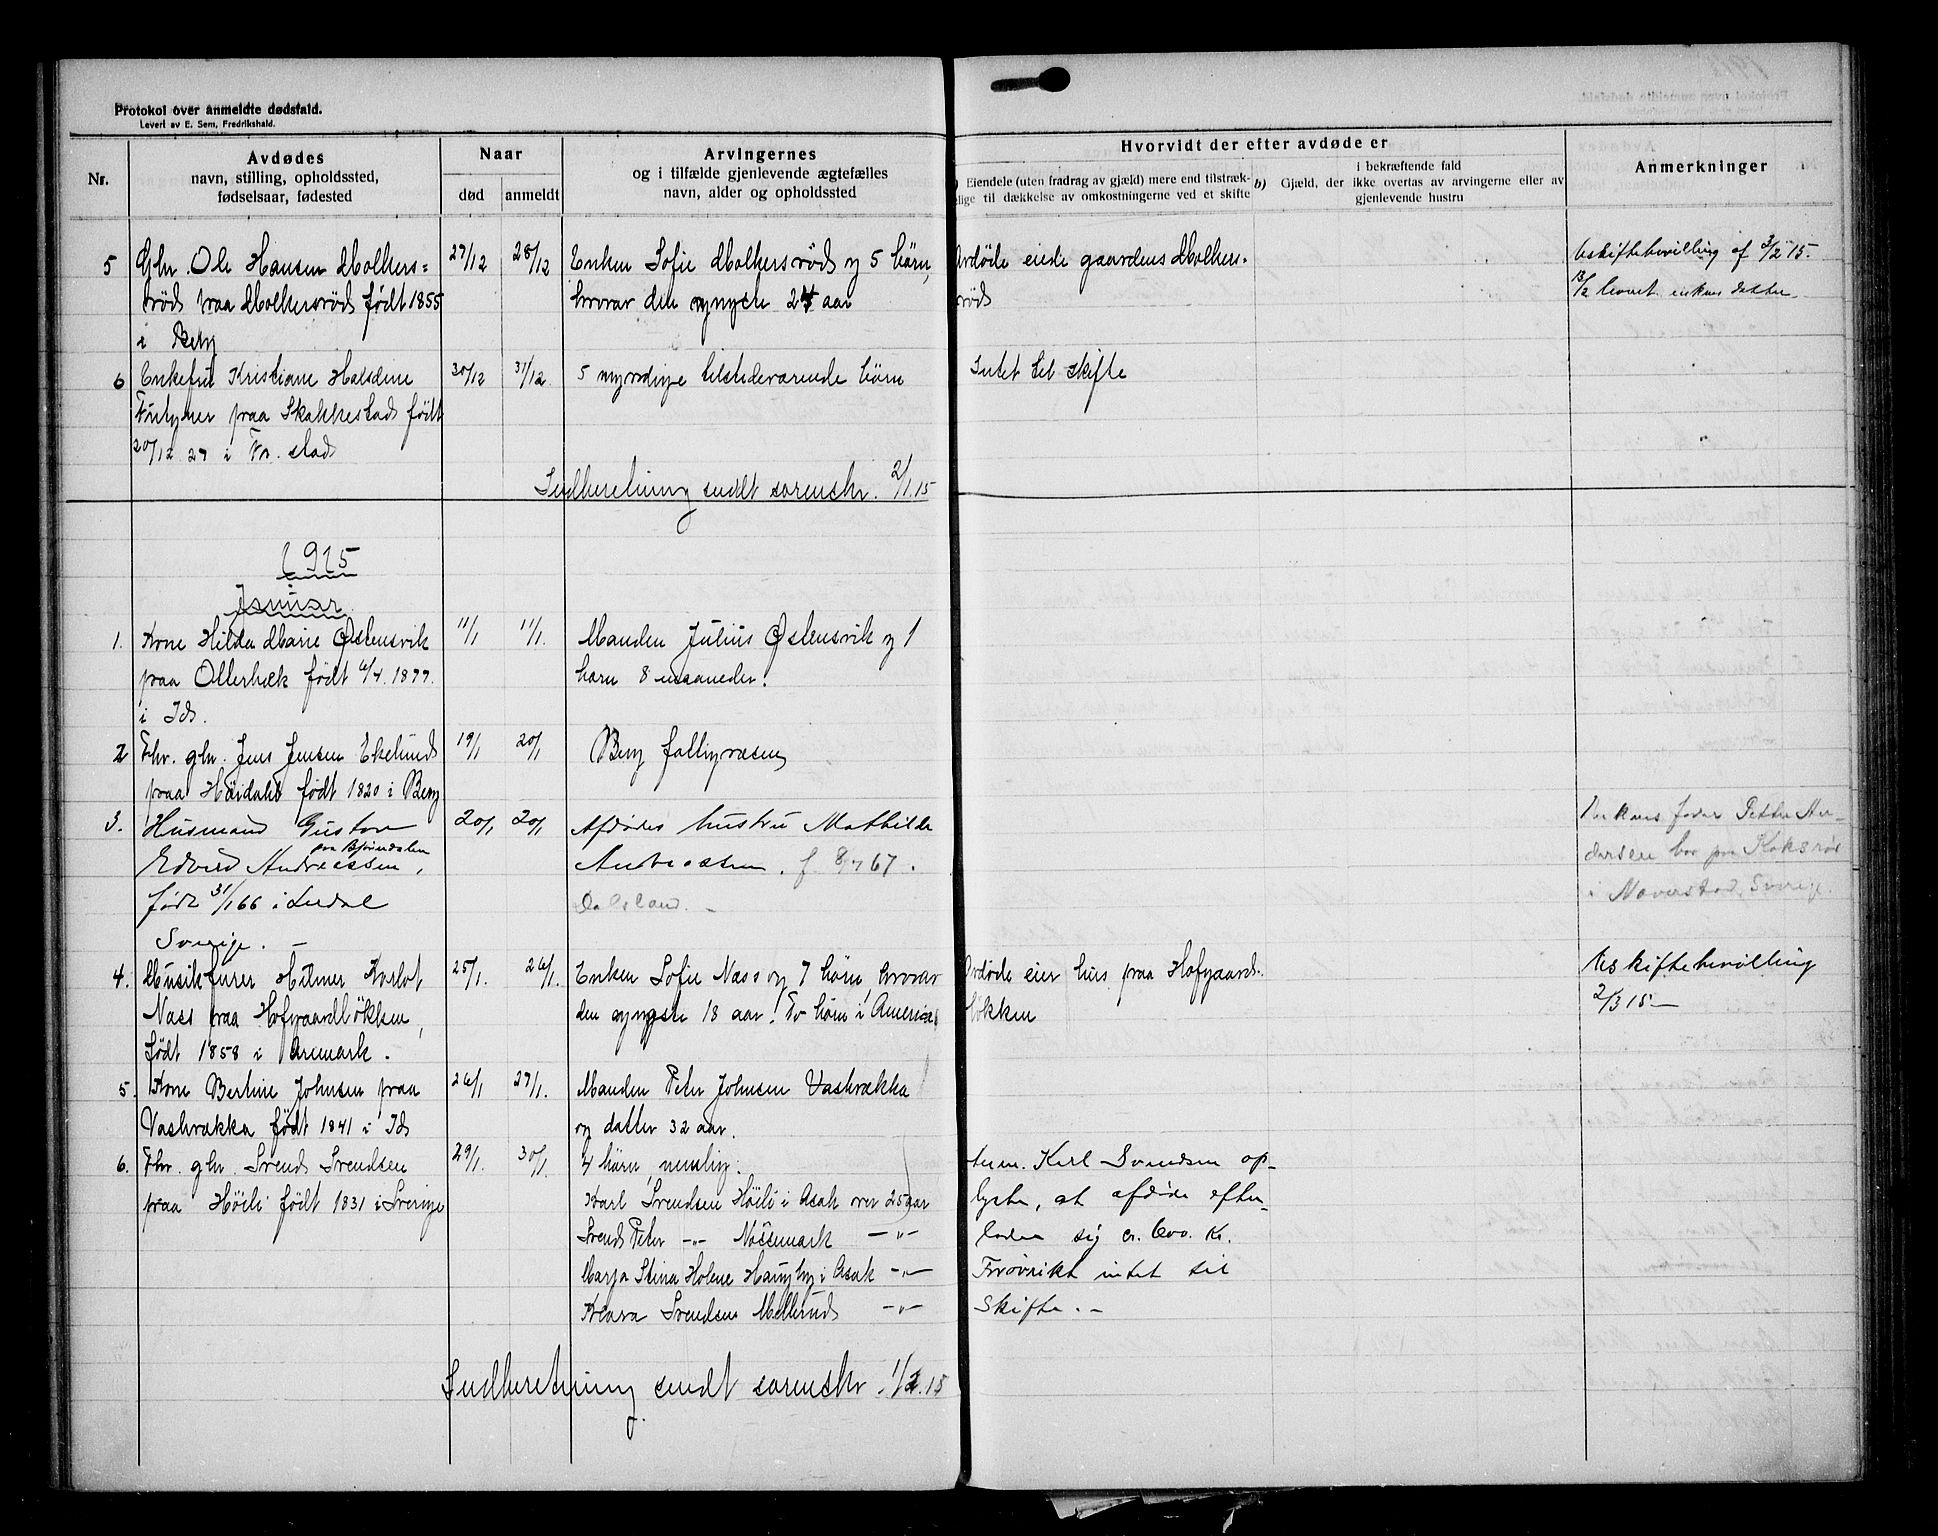 Protokol over anmeldte dødsfald.
Levert av E. Sem, Fredrikshald.
Nr.
Avdødes
navn, stilling, opholdssted,
fødselsaar, fødested
Naar
død
anmeldt
Arvingernes
og i tilfælde gjenlevende ægtefælles
navn, alder og opholdssted
Hvorvidt der efter avdøde er
Eiendele (uten fradrag av gjæld) mere end tilstræk-
elige til dækkelse av omkostningerne ved et skifte
b) Gjæld, der
i bekræftende fald
ikke overtas av arvingerne eller av
gjenlevende hustru
Anmerkninger
5 Gbr. Ole Hansen Molkers=
rød paa Molkersrød født 1855
i Berg
27/12 28/12
Enken Sofie Molkersrød og 5 børn,
hvorav den yngste 24 aar
Avdøde eiede gaarden Molkers-
rød
Uskiftebevilling af 3/2 15.
13/2 levert enkens datter
6 Enkefru Kristiane Halsdine
praa Skakkestad født
20/12 27 i Fr. stad
30/12 31/12
5 myndige tilstedeværende børn
Intet til skifte
Indberetning sendt sorenskr. 2/1.15
1915
Januar
1. Kone Hilda Marie Østensvik
paa Ollerbæk født 6/4. 1877.
i Ids.
11/1 11/1.
Manden Julius Østensvik og 1
barn 8 maaneder.
2 Fhv. gbr. Jens Jensen Ekelund
paa Høidalo født 1820 i Berg
19/1 20/1
Berg fattigvæsen
3. Husmand Gustav
Edvard Andreassen, paa Bjørndalen
født 31/1 66 i
Sverige. -
20/1 20/1
Afdødes hustru Mathilde
Andreassen. f. 8/7 67.
Dalsland. -
Enkens fader Petter An-
dersen bor paa Koksrød
i Naverstad, Sverige.
4. Musikfurer Hilmer Karlot
Næss paa Hofgaardløkken,
født 1858 i Aremark.
25/1. 26/1.
Enken Sofie Næss og 7 børn, hvorav
den yngste 18 aar. To børn i Amerika
Avdøde eier hus paa Hofgaard-
løkken
Uskiftebevilling
2/3 15 -
5. Kone Bertine Johnsen paa
Vashrækka født 1841 i Ids
26/1 27/1.
Manden Peter Johnsen Vashrækka
og datter 32 aar.
6. Fhv. gbr. Svend Svendsen
paa Høili født 1831 i Sverige
29/1. 30/1.
4 børn, nemlig:
Karl Svendsen Høili i Asak over 25 aar
Svend Peter -"- Nøssemark -"-
Marja Stina Holene Haugby i Asak -"-
Klara Svendsen Mellerud -"-
Anm. Karl Svendsen op-
lyste, at afdøde efter-
lader sig ca. 600. Kr.
Forøvrikt intet til
Skifte. -
Indberetning sendt sorenskr. 1/2.15